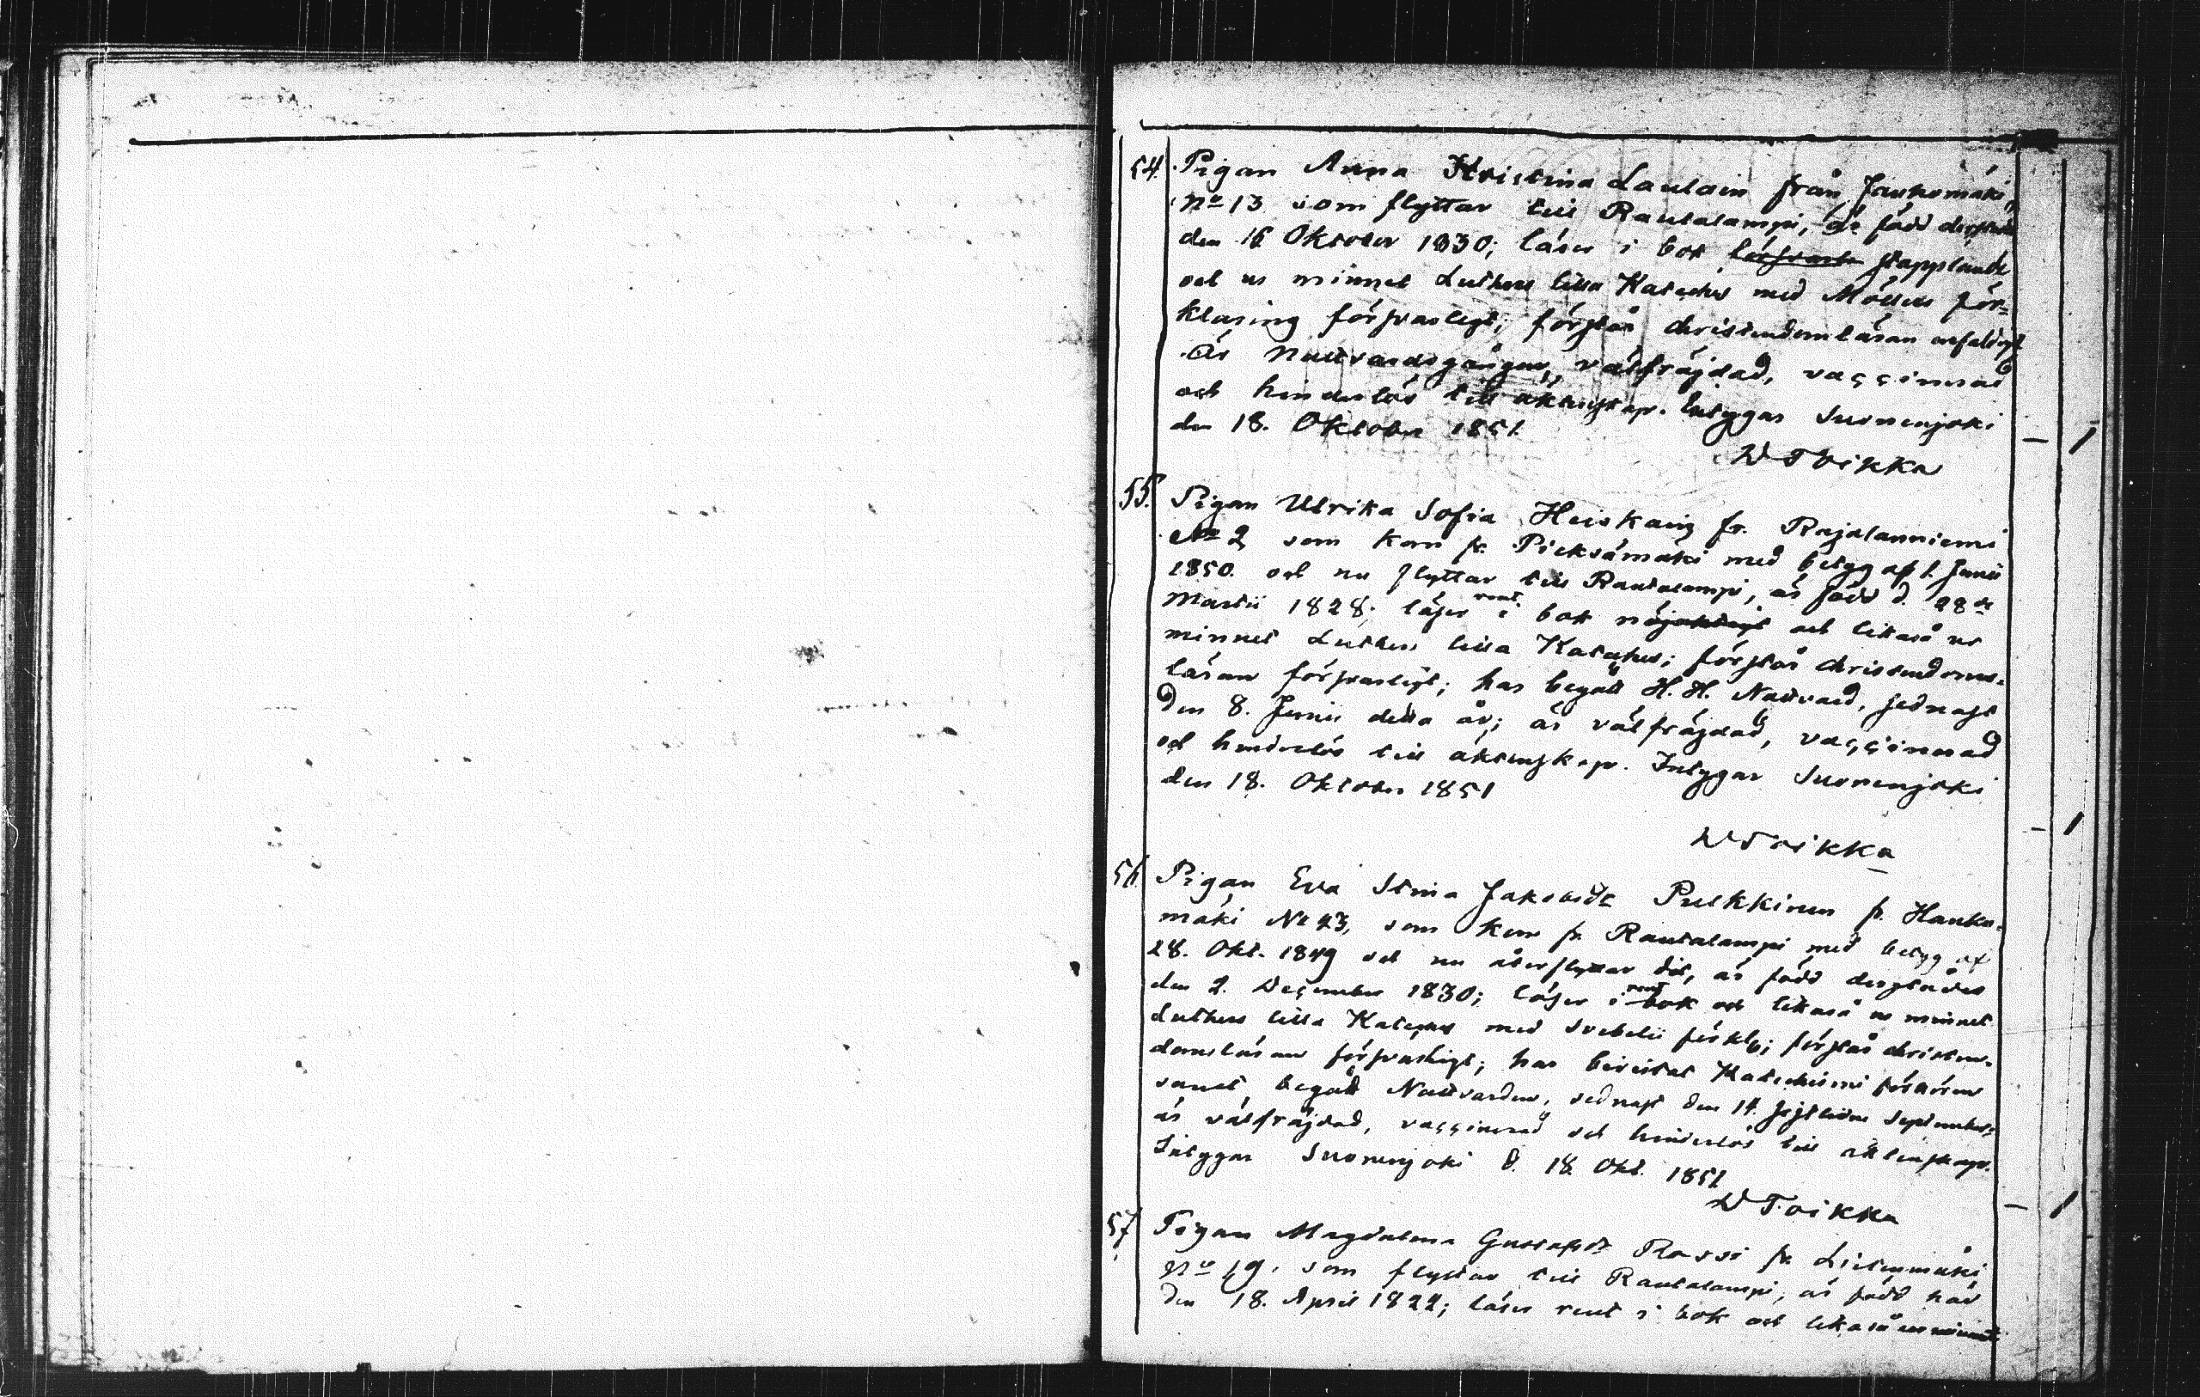 54. Pigan Anna Kristina Laulain från
No 13 som flyttar till Rautalampi, är född dersteds
den 16 Oktober 1830; läser i bok försvarl. stapplande
och ur minnet Luthers lilla Kateches med Möllers för-
klaring försvarligt; förstår christendomläran enfaldigt
Är Nattvardsgången, välfräjdad, vaccinerad
och hinderlös till äktenskap. Intygar Suonenjoki
den 18. Oktober 1851.
W Toikka
— 1
55. Pigan Ulrika Sofia Heiskain fr. Rajalanniemi
No 2 som kom fr. Pieksämäki med betyg af 1. Junii
1850. och nu flyttar till Rautalampi, är född d. 28de
Martii 1828; läser rent i bok nöjaktigt och likaså ur
minnet Luthers lilla Kateches; förstår christendoms-
läran försvarligt; har begått H. H. Nattvard, sednast
den 8. Junii detta år; är välfräjdad, vaccinerad
och hinderlös till äktenskap. Intygar Suonenjoki
den 18. Oktober 1851
W Toikka
— 1
56. Pigan Eva Stina Jakobsdr Pulkkinen fr. Hanka-
mäki No 43, som kom fr. Rautalampi med betyg af
28. Okt. 1849 och nu återflyttar dit, är född derstädes
den 2. December 1830; läser rent i bok och likaså ur minnet
Luthers lilla Kateches med Svebelii förkl; förstår christen-
domsläran försvarligt; har bevistat Katechismi förhören
samt begått Nattvarden, sednast den 14. sistledne September;
är välfräjdad, vaccinerad och hinderlös till äktenskap.
Intygar Suonenjoki d. 18. Okt. 1851
W Toikka
— 1
57 Pigan Magdalena Gustafsdr Rossi fr. Lietenmäki
No 19. som flyttar till Rautalampi, är född här
den 18. April 1822; läser rent i bok och likaså ur minnet